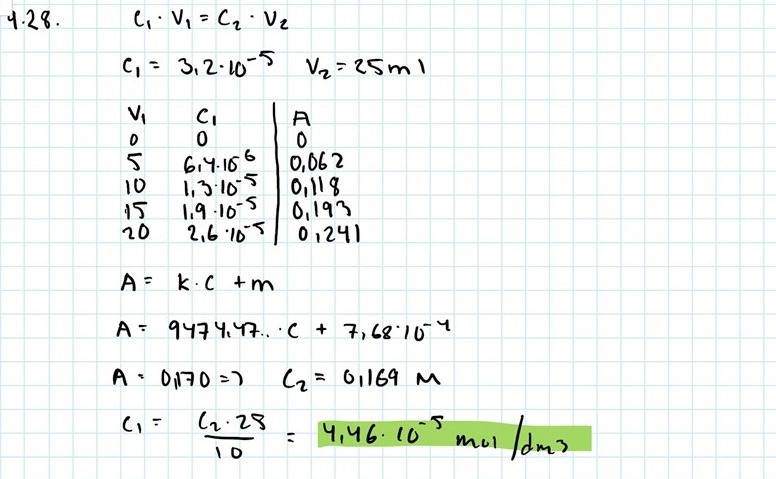 4.28. C₁ · V₁ = C₂ · V₂
C₁ = 3,2·10⁻⁵ V₂ = 25ml
V₁ C₁ A
0 0 0
5 6,4·10⁶ 0,062
10 1,3·10⁻⁵ 0,118
15 1,9·10⁻⁵ 0,193
20 2,6·10⁻⁵ 0,241
A = k·C + m
A = 9474,47.. ·C + 7,68·10⁻⁴
A = 0,170 => C₂ = 0,169 M
C₁ = C₂·25 / 10 = 4,46·10⁻⁵ mol/dm3